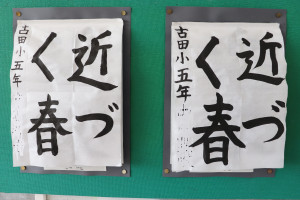 近づ
く春
古田小五年
近づ
く春
古田小五年